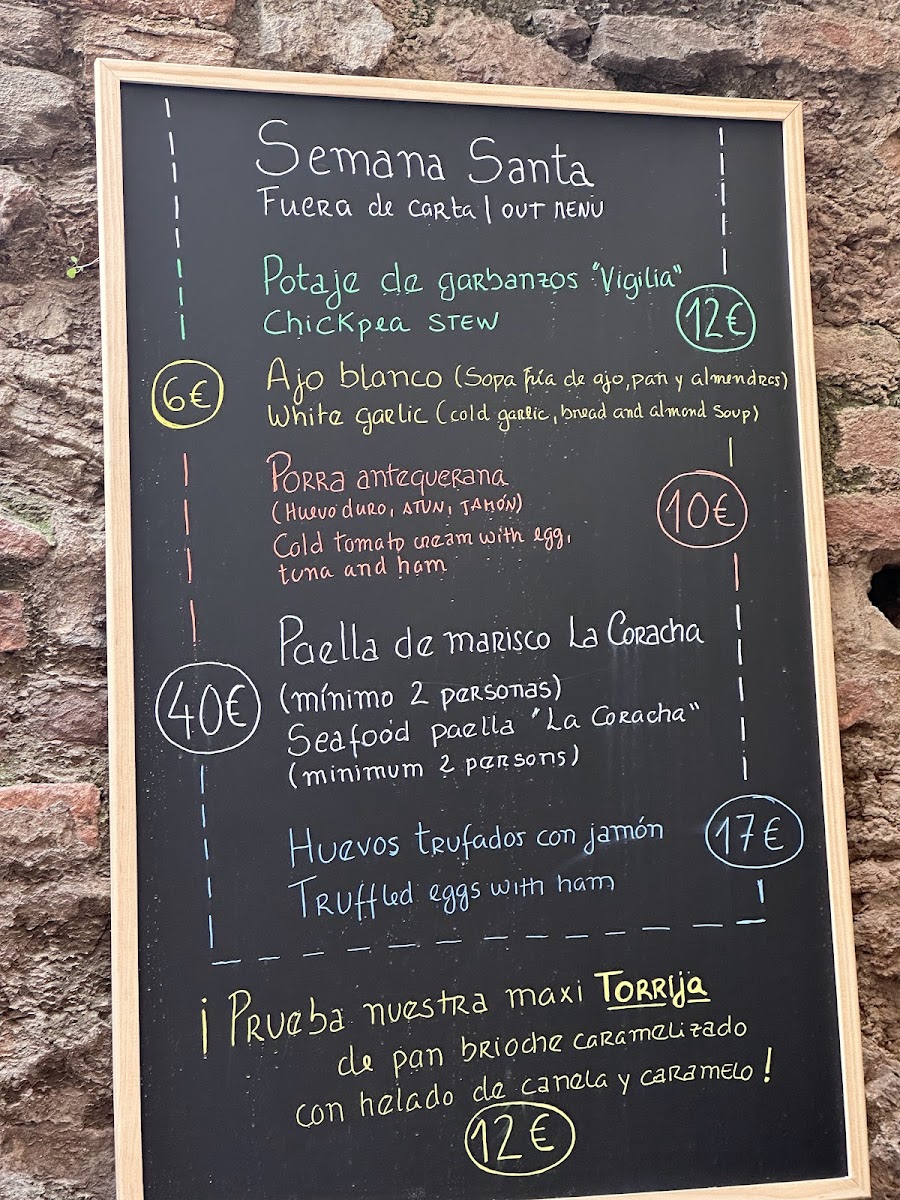 Semana Santa
Fuera de carta | OUT MENU
Potaje de garbanzos "Vigilia"
Chickpea STEW
12€
6€
Ajo blanco (Sopa fría de ajo, pan y almendras)
White garlic (cold garlic, bread and almond soup)
Porra antequerana
(Huevo duro, ATUN, JAMÓN)
10€
Cold tomato cream with egg,
tuna and ham
Paella de marisco La Coracha
40€
(mínimo 2 personas)
Seafood paella "La Coracha"
(minimum 2 persons)
Huevos trufados con jamón
17€
Truffled eggs with ham
¡Prueba nuestra maxi Torrija
de pan brioche caramelizado
con helado de canela y caramelo!
12€